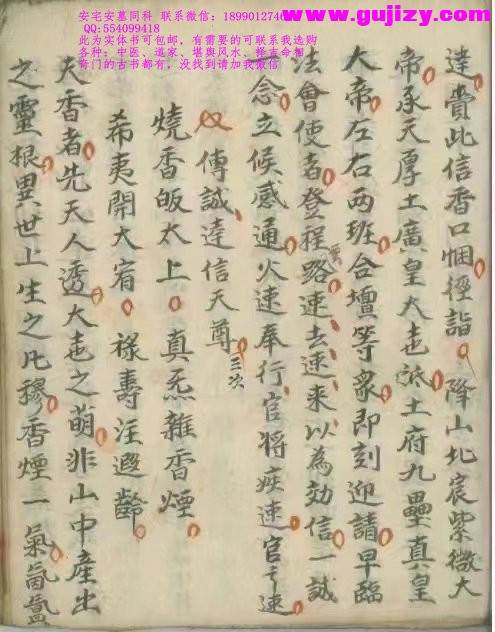 安宅安墓同科 联系微信：1899012740
QQ:554099418
此为实体书可包邮，有需要的可联系我选购
各种：中医、道家、堪舆风水、择吉命相、
奇门的古书都有，没找到请加我微信
www.gujizy.com
逹賫此信香口悃徑詣降山北宸紫微大
帝承天厚土廣皇大地祗土府九壘真皇
大帝左右兩班合壇等衆即刻迎請早臨
法會使者登程路速去速來以為効信一誠
念立候感通火速奉行官將疾速官〻速
傳誠逹信天尊三次
燒香皈太上真炁雜香煙
希夷開大宥祿壽注遐齡
夫香者先天人透大地之萌非山中産出
之靈根異世上生之凡穆香煙一氣氤氳